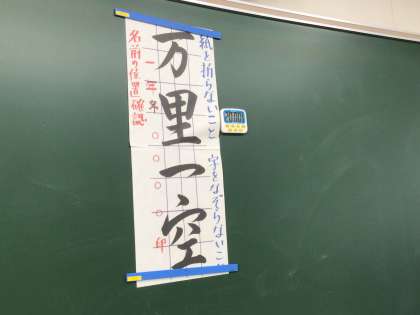 紙を折らないこと 字をなぞらないこと
万里一空
一年冬〇〇〇〇印
名前の位置確認